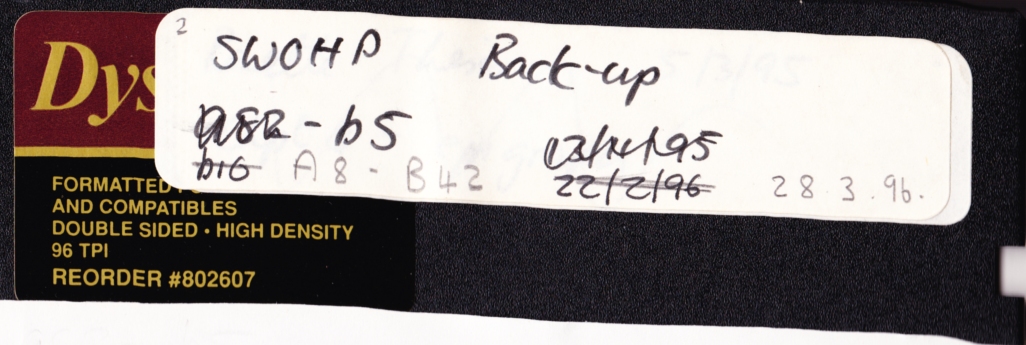 2
SWOHP Back-up
- b5 13/11/95
b16 A8 - B42 22/2/96 28.3.96.
Dys
FORMATTED
AND COMPATIBLES
DOUBLE SIDED • HIGH DENSITY
96 TPI
REORDER #802607